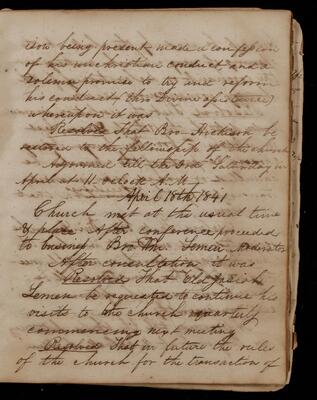 son being present made a confession
of his unchristian conduct and a
solemn promise to try and reform
his conduct (thro Divine assistance)
whereupon it was
Resolved That Bro. be
restored to the fellowship of the church
Adjourned till the Saturday in
April at 11. oclock A. M.
April 18th 1841
Church met at the usual time
& place. After conference proceeded
to business Bro. Wm. Lemen Moderator
After consultation it was
Resolved That Eld. Josiah
Lemen be requested to continue his
visits to the church quarterly
commencing next meeting
Resolved That in future the rules
of the church for the transaction of